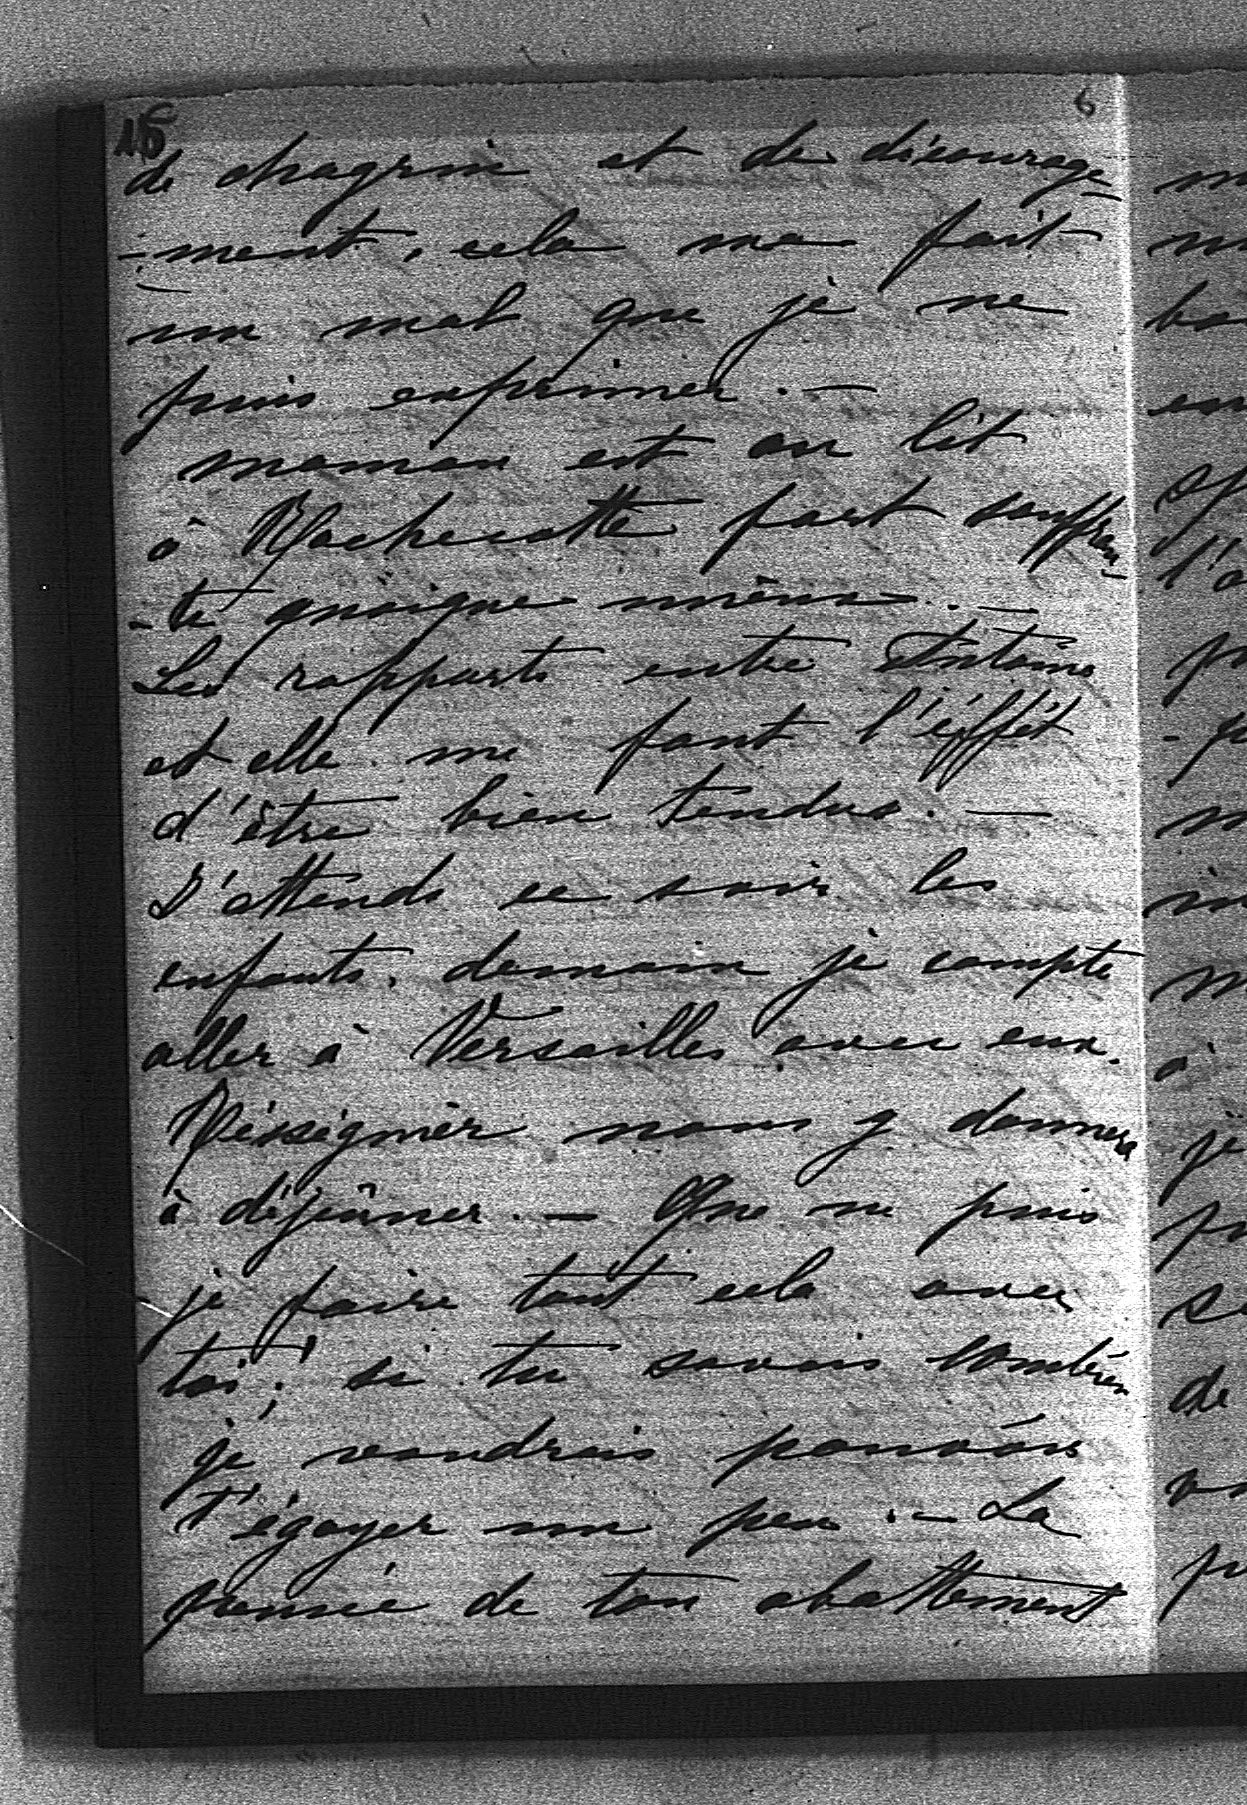 16 6
de chagrin et de décourage-
-ment, cela me fait
un mal que je ne
puis exprimer. —
maman est au lit
à Rochecotte fort souffran-
-te quoique mieux. —
Les rapports entre Antoine
et elle me font l'éffét
d'être bien tendus. —
J'attends ce soir les
enfants. demain je compte
aller à Versailles avec eux.
nous y donnera
à déjeûner. — Que ne puis
je faire tout cela avec
toi! si tu savais combien
je voudrais pouvoir
t'égayer un peu. — La
pensée de ton abattement
m
m
ba
en
sp
l'a
p
-p
m
in
m
à
je
pu
se
de
v
p